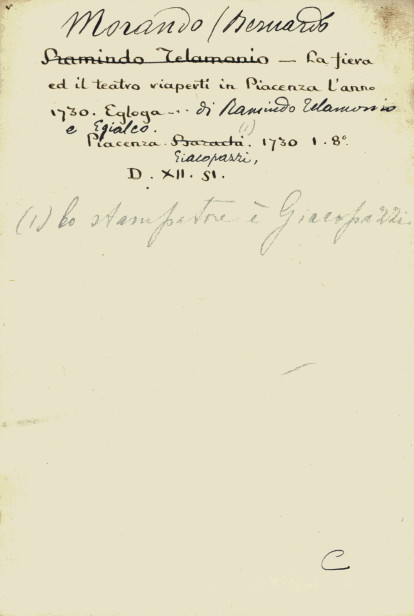 Morando / Bernardo
Ramindo Telamonio — La fiera
ed il teatro riaperti in Piacenza l'anno
1730. Egloga ... di Ramindo Telamonio
e Egialco. (1)
Piacenza. Bazachi. 1730 1. 8°
Giacopazzi,
D. XII. 51.
(1) Lo stampatore è Giacopazzi.
C